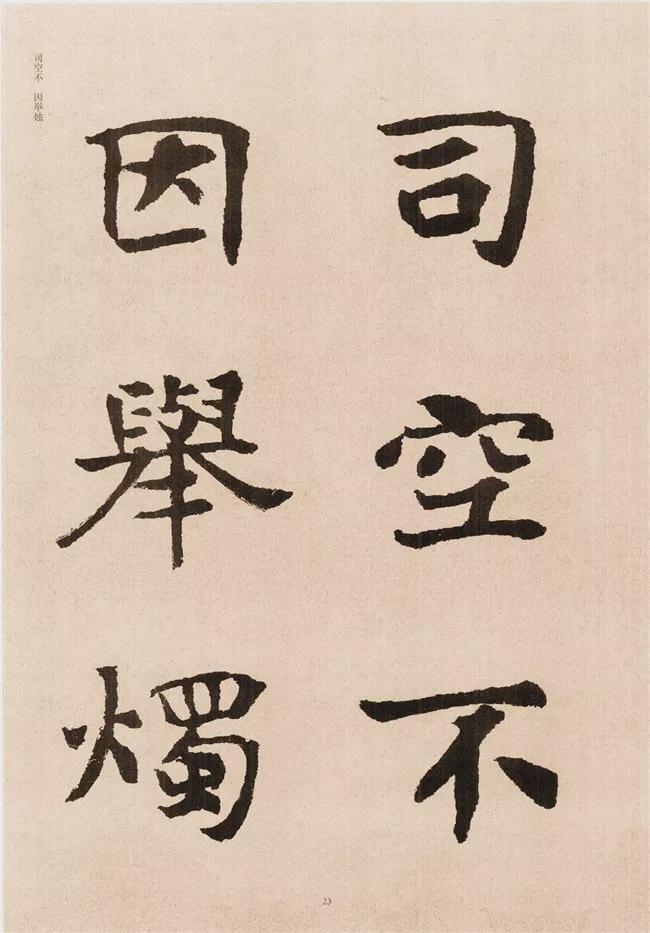 司空不
因舉燭
司空不 因举烛
23